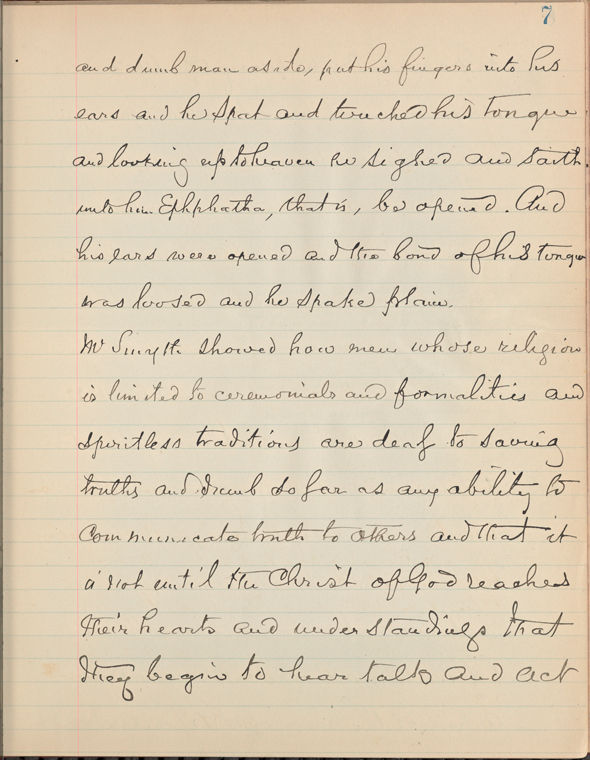 7
and dumb man aside, put his fingers into his
ears and he spat and touched his tongue
and looking up to heaven he sighed and saith
unto him Ephphatha, that is, be opened. And
his ears were opened and the bond of his tongue
was loosed and he spake plain.
Mr Smyth showed how men whose religion
is limited to ceremonials and formalities and
spiritless traditions are deaf to saving
truths and dumb so far as any ability to
communicate truth to others and that it
is not until the Christ of God reaches
their hearts and understandings that
they begin to hear talk and act